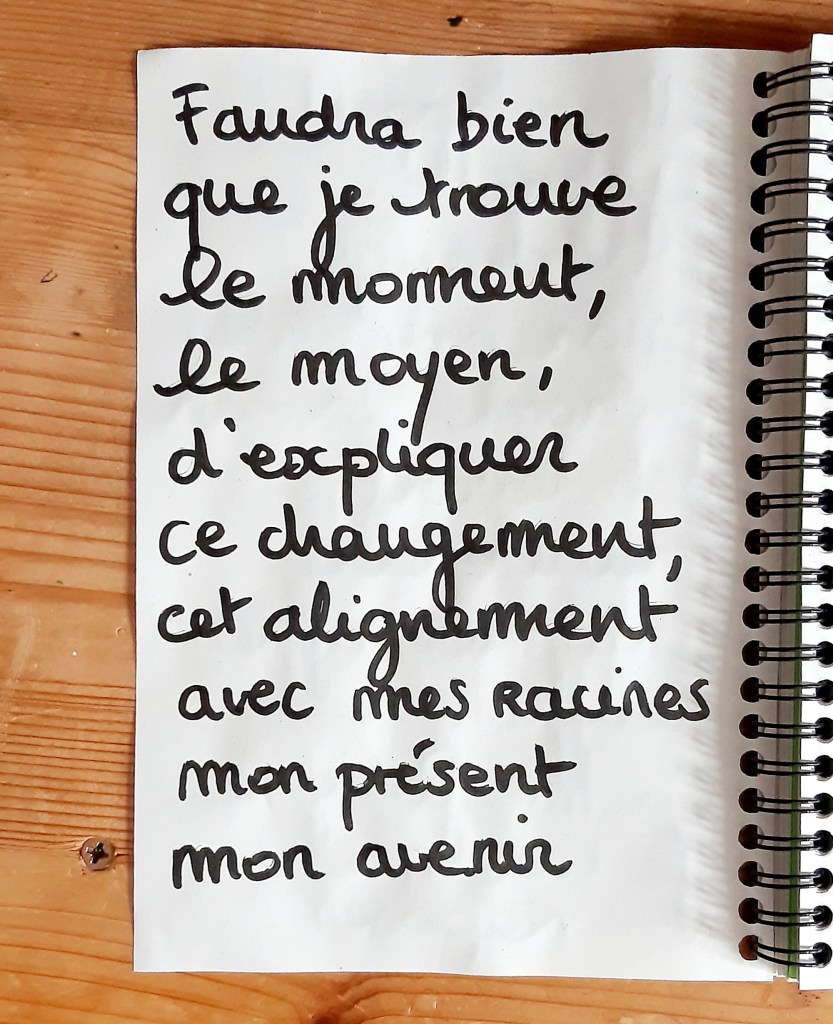 Faudra bien
que je trouve
le moment,
le moyen,
d'expliquer
ce changement,
cet alignement
avec mes racines
mon présent
mon avenir